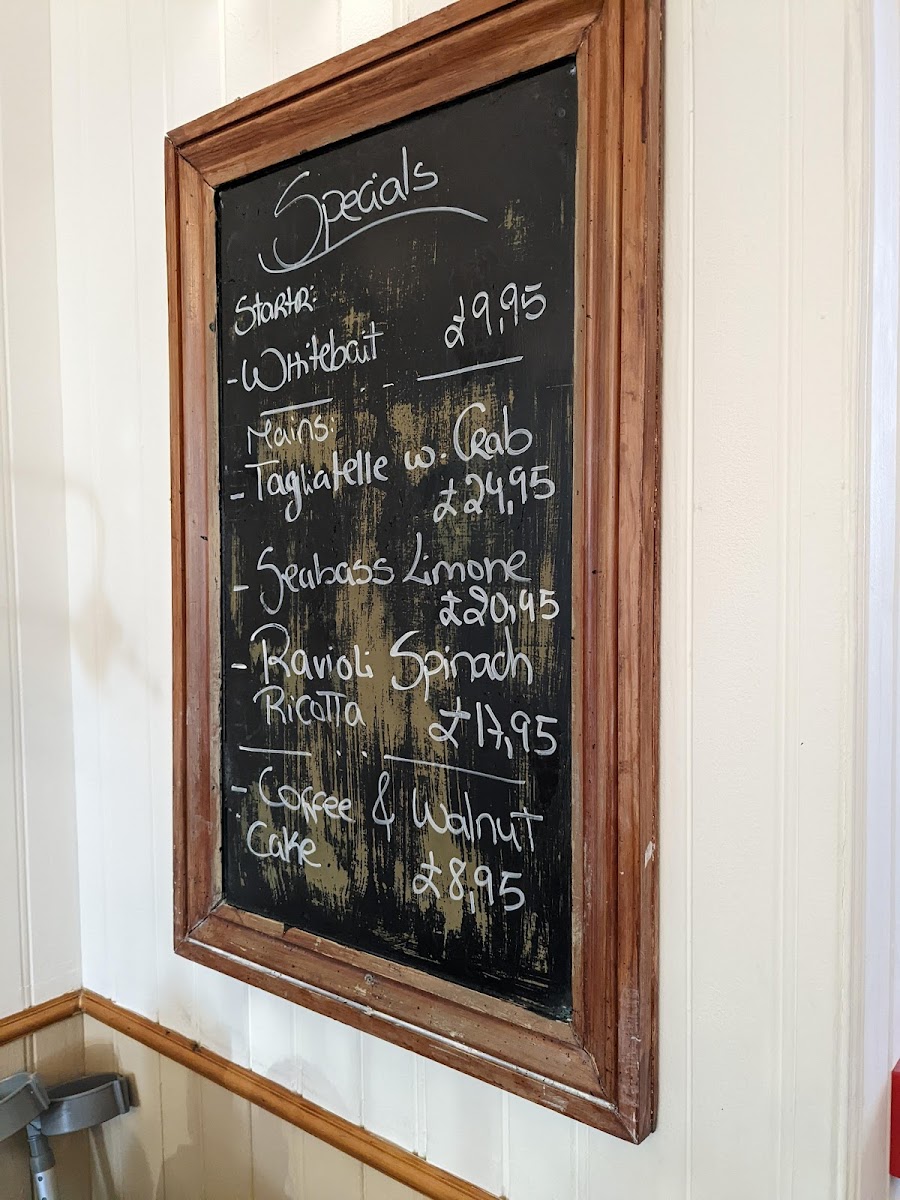 Specials
Startr:
- Whitebait £9,95
Mains:
- Tagliatelle w. Crab
£24,95
- Seabass Limone
£20,95
- Ravioli Spinach
Ricotta £17,95
- Coffee & Walnut
Cake £8,95